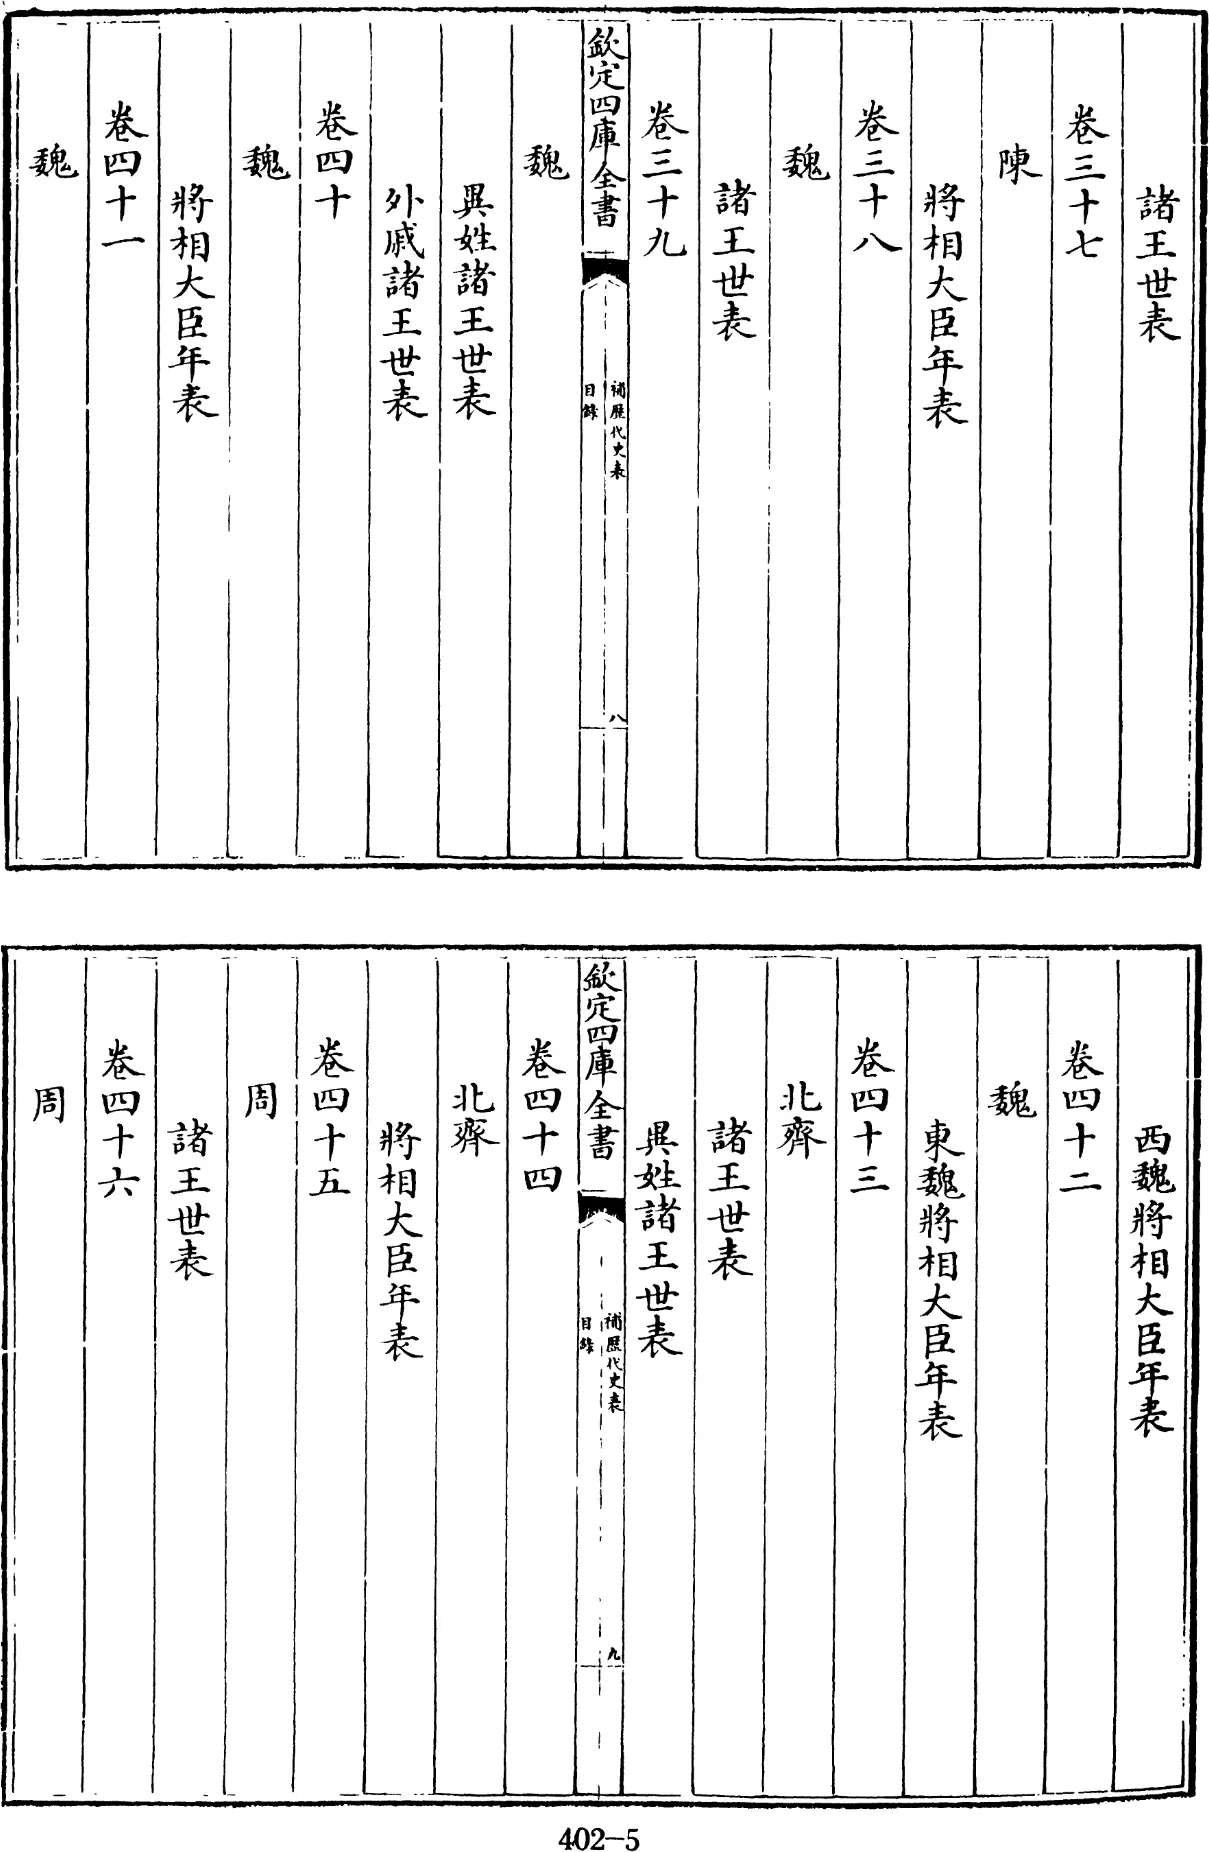 諸王世表
卷三十七
陳
將相大臣年表
卷三十八
魏
諸王世表
卷三十九
欽定四庫全書
補歷代史表
目錄
八
魏
異姓諸王世表
外戚諸王世表
卷四十
魏
將相大臣年表
卷四十一
魏
西魏將相大臣年表
卷四十二
魏
東魏將相大臣年表
卷四十三
北齊
諸王世表
異姓諸王世表
欽定四庫全書
補歷代史表
目錄
九
卷四十四
北齊
將相大臣年表
卷四十五
周
諸王世表
卷四十六
周
402-5